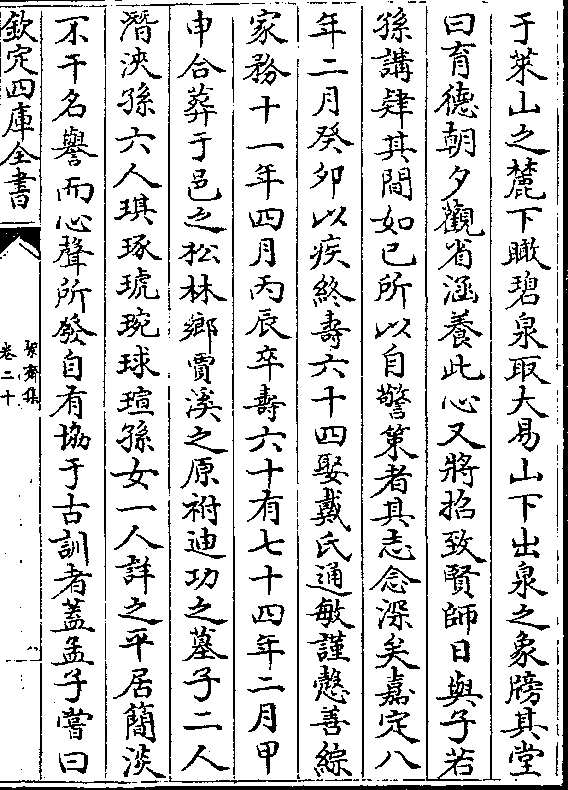 于萊山之麓下瞰碧泉取大易山下出泉之象牓其堂
曰育德朝夕觀省涵養此心又將招致賢師日與子若
孫講肄其間如已所以自警策者其志念深矣嘉定八
年二月癸卯以疾終壽六十四娶戴氏通敏謹慤善綜
家務十一年四月丙辰卒壽六十有七十四年二月甲
申合葬于邑之松林鄉賈溪之原祔迪功之墓子二人
潛泱孫六人琪琢琥琬球瑄孫女一人詳之平居簡淡
不干名譽而心聲所發自有協于古訓者蓋孟子嘗曰
欽定四庫全書
絜齋集
卷二十